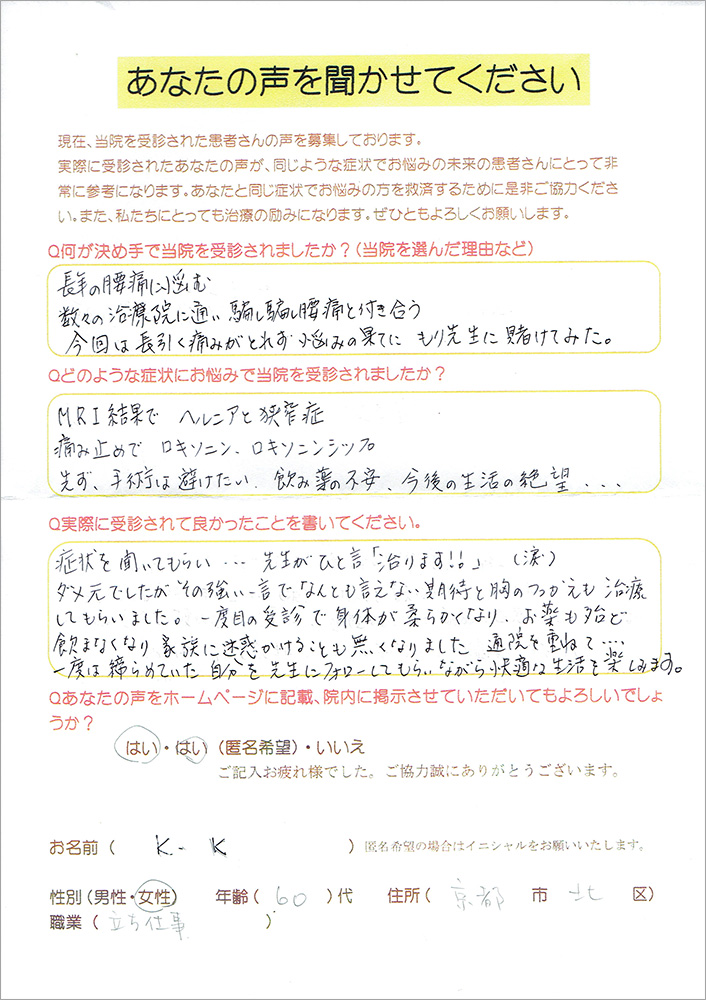 あなたの声を聞かせてください
現在、当院を受診された患者さんの声を募集しております。
実際に受診されたあなたの声が、同じような症状でお悩みの未来の患者さんにとって非
常に参考になります。あなたと同じ症状でお悩みの方を救済するために是非ご協力くださ
い。また、私たちにとっても治療の励みになります。ぜひともよろしくお願いします。
Q何が決め手で当院を受診されましたか？（当院を選んだ理由など）
長年の腰痛に悩む
数々の治療院に通い騙し騙し腰痛と付き合う
今回は長引く痛みがとれず悩みの果てに もり先生に賭けてみた。
Qどのような症状にお悩みで当院を受診されましたか？
MRI結果で ヘルニアと狭窄症
痛み止めで ロキソニン、ロキソニンシップ
先ず、手術は避けたい、飲み薬の不安、今後の生活の絶望...
Q実際に受診されて良かったことを書いてください。
症状を聞いてもらい... 先生がひと言「治ります!!」（涙）
ダメ元でしたがその強い一言でなんとも言えない期待と胸のつっかえも治療
してもらいました。一度目の受診で身体が柔らかくなり、お薬も殆ど
飲まなくなり家族に迷惑かけることも無くなりました 通院を重ねて...
一度は締らめていた自分を先生にフォローしてもらいながら快適な生活を楽しみます。
Qあなたの声をホームページに記載、院内に掲示させていただいてもよろしいでしょ
うか？
はい・はい（匿名希望）・いいえ
ご記入お疲れ様でした。ご協力誠にありがとうございます。
お名前（ K-K ）匿名希望の場合はイニシャルをお願いいたします。
性別（男性・女性） 年齢（ 60 ）代 住所（ 京都 市 北 区）
職業（立ち仕事 ）